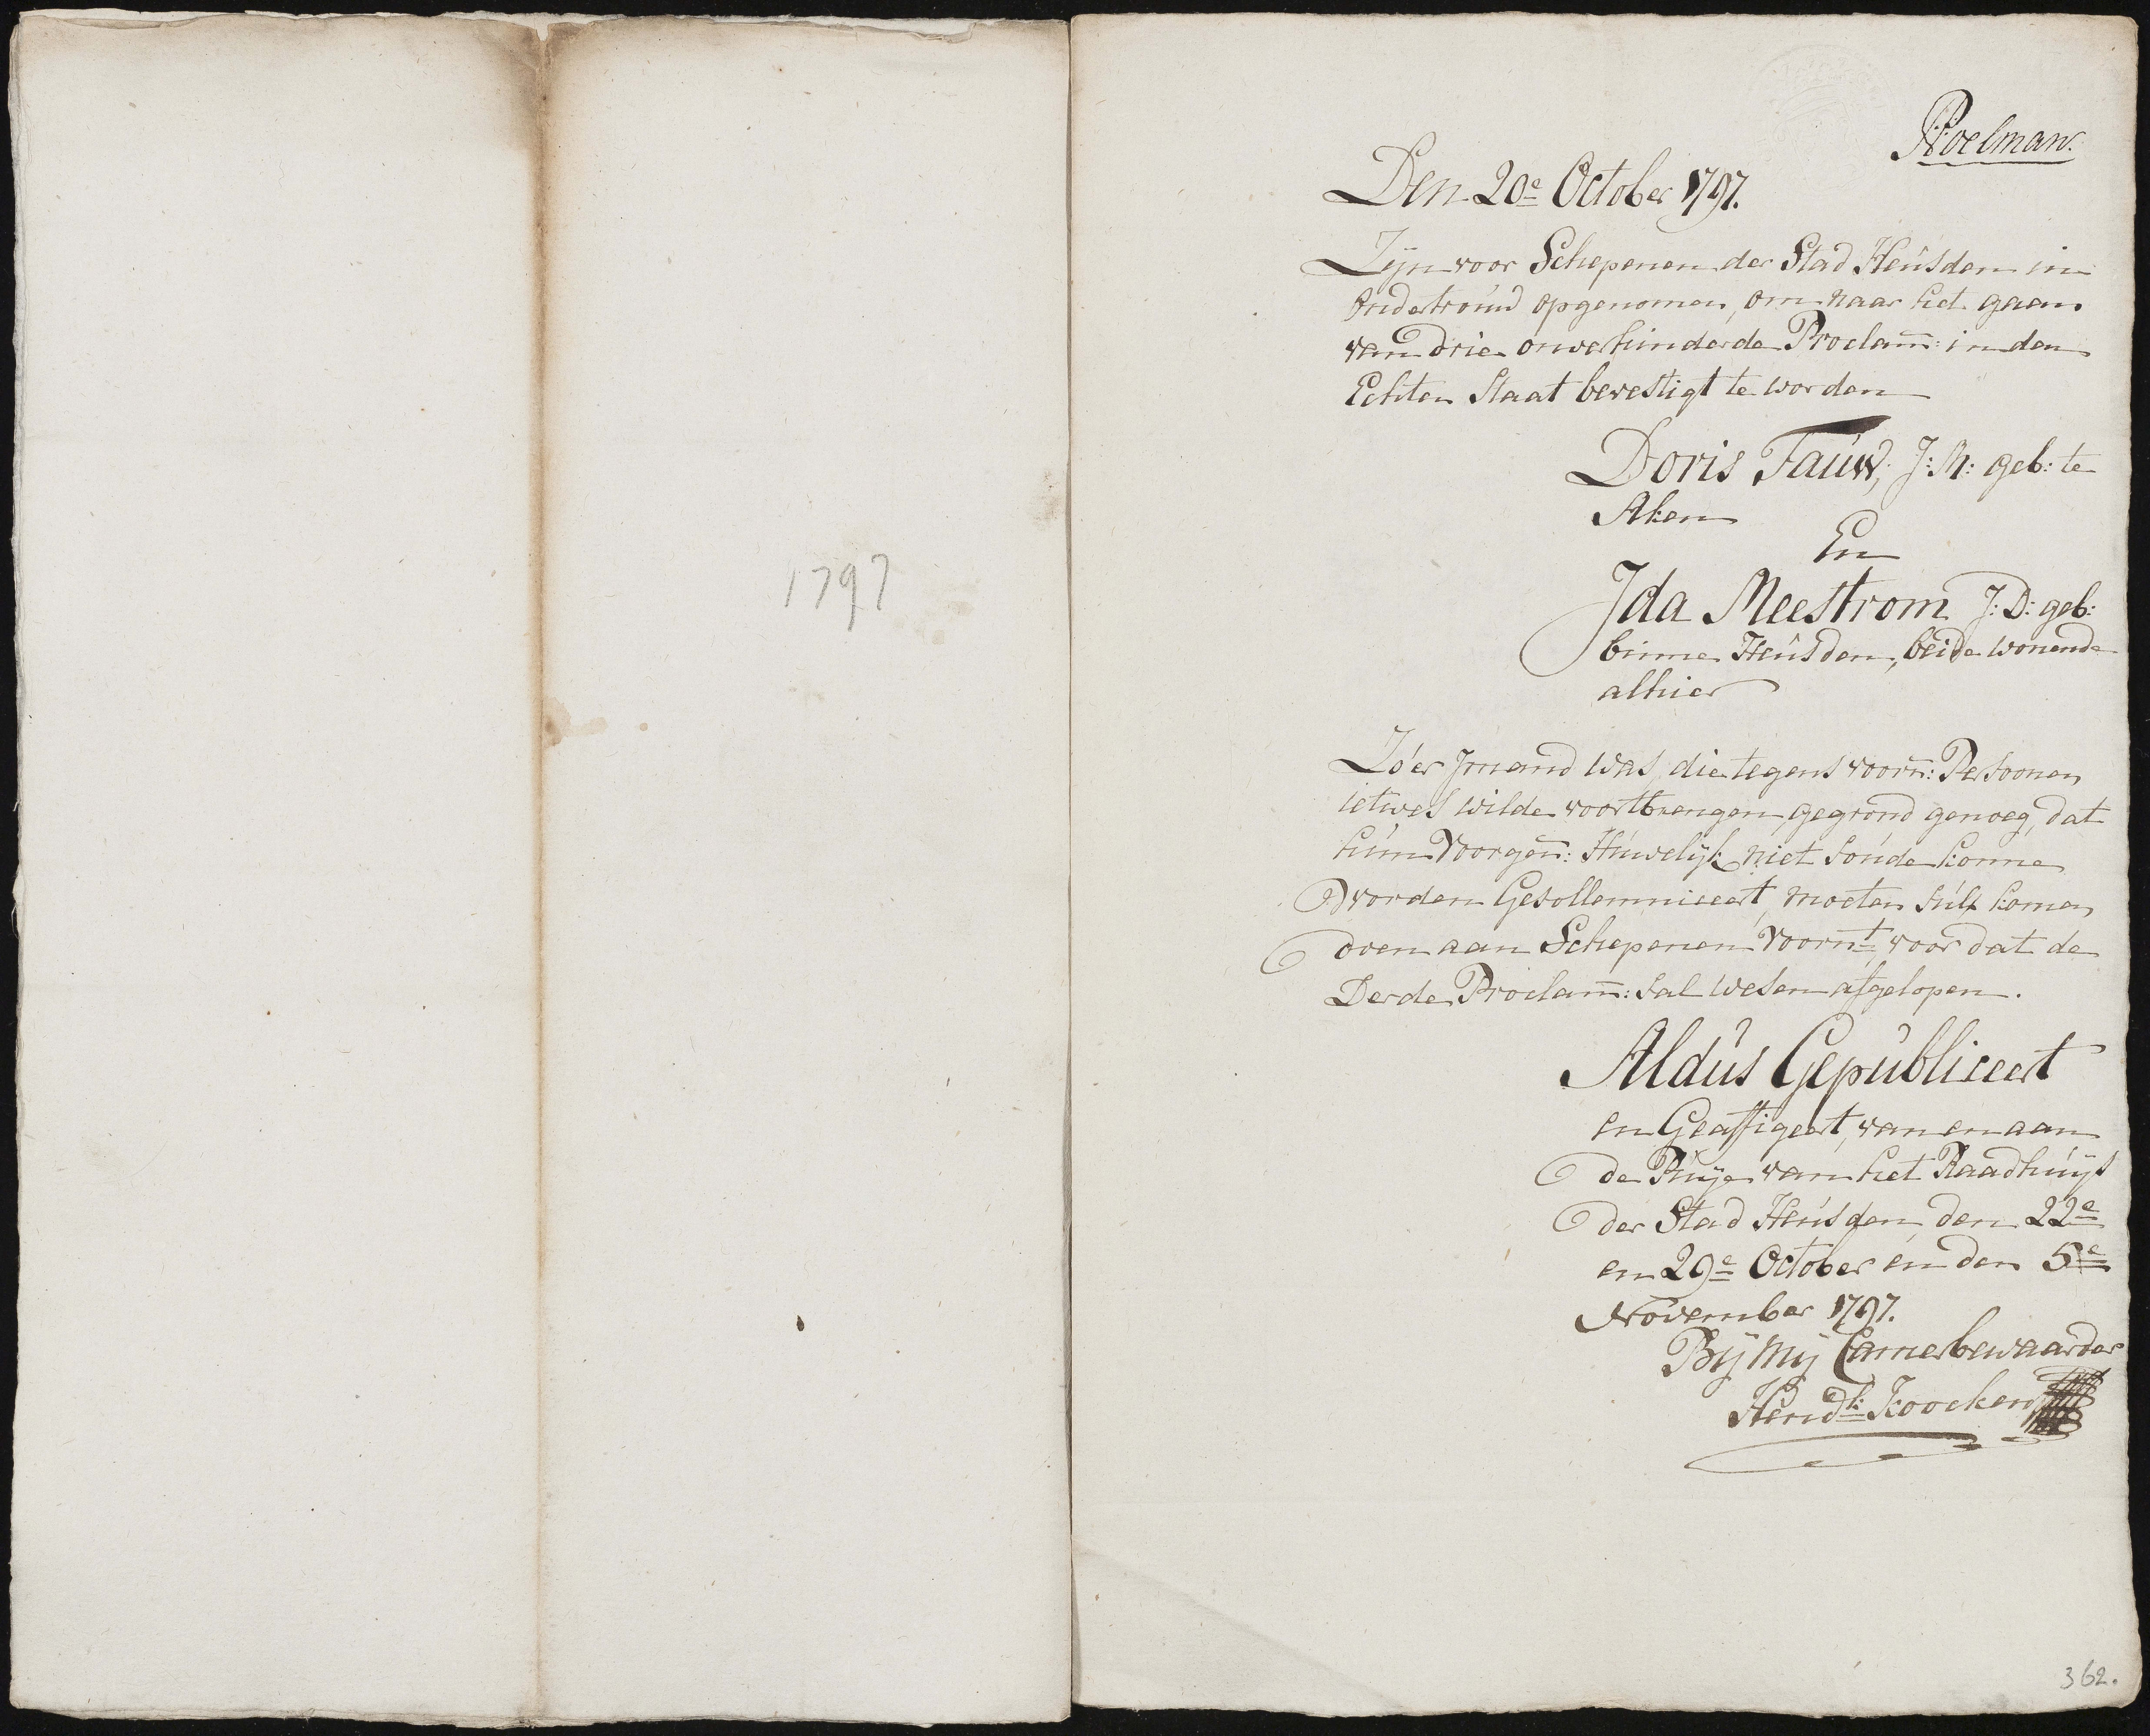 1797
Roelman.
Den 20e October 1797.
Zijn voor Schepenen der Stad Heusden in
Ondertrouw opgenomen, om naar het gaan
van drie onverhinderde Proclam̄: in den
Echten Staat bevestigt te worden
Doris Fauw, J: M: geb: te
Aken
En
Ida Meestrom J: D: geb:
binne Heusden, beide wonende
alhier
Zo'er Jmand was, die tegens voorn̄: Persoonen
ietwes wilde voortbrengen, gegrond genoeg, dat
hun Voorgen̄: Huwelijk niet soude konne
worden Gesollemniceert, moeten sulx komen
doen aan Schepenen Voornt, voor dat de
Derde Proclam̄: sal wesen afgelopen.
Aldus Gepubliceert
en Geaffigeert, van en aan
de Puije van het Raadhuijs
der Stad Heusden, den 22e
en 29e October en den 5e
November 1797.
Bij Mij Camerbewaarder
Hendk: Koocken
362.